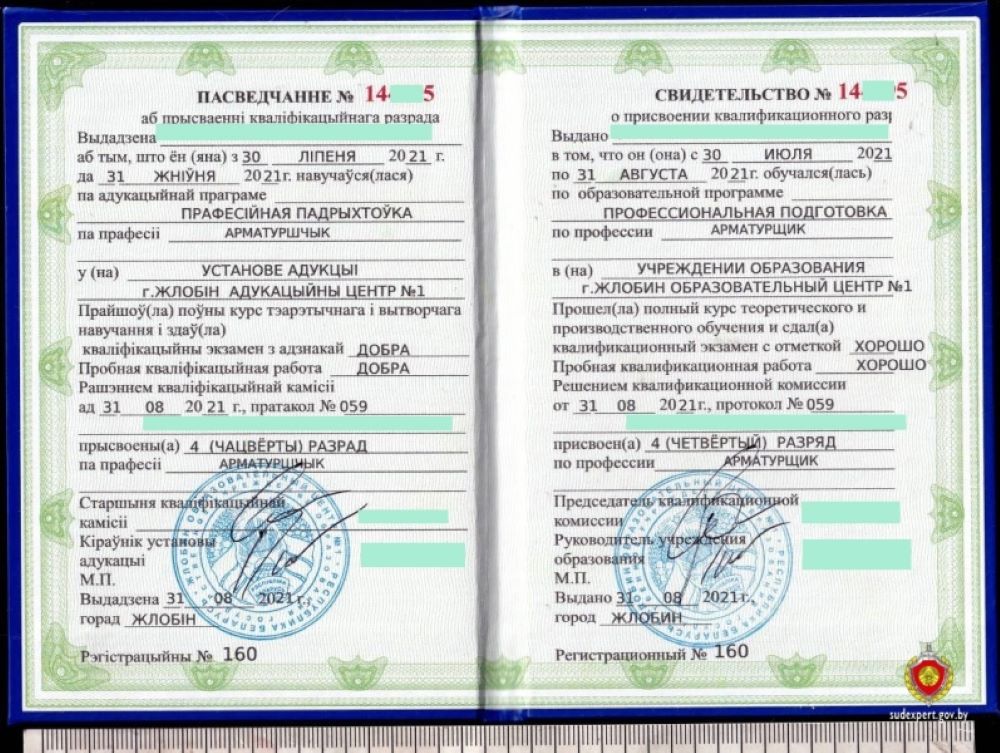 ПАСВЕДЧАННЕ № 14 5
аб прысваенні кваліфікацыйнага разрада
Выдадзена
аб тым, што ён (яна) з 30 ЛІПЕНЯ 2021 г.
да 31 ЖНІЎНЯ 2021г. навучаўся(лася)
па адукацыйнай праграме
ПРАФЕСІЙНАЯ ПАДРЫХТОЎКА
па прафесіі АРМАТУРШЧЫК
у (на) УСТАНОВЕ АДУКЦЫІ
г.ЖЛОБІН АДУКАЦЫЙНЫ ЦЕНТР №1
Прайшоў(ла) поўны курс тэарэтычнага і вытворчага
навучання і здаў(ла)
кваліфікацыйны экзамен з адзнакай ДОБРА
Пробная кваліфікацыйная работа ДОБРА
Рашэннем кваліфікацыйнай камісіі
ад 31 08 2021 г., пратакол № 059
прысвоены(а) 4 (ЧАЦВЁРТЫ) РАЗРАД
па прафесіі АРМАТУРШЧЫК
Старшыня кваліфікацыйнай
камісіі
Кіраўнік установы
адукацыі
М.П.
Выдадзена 31 08 2021г.,
горад ЖЛОБІН
Рэгістрацыйны № 160
СВИДЕТЕЛЬСТВО № 14 95
о присвоении квалификационного раз
Выдано
в том, что он (она) с 30 ИЮЛЯ 2021
по 31 АВГУСТА 2021г. обучался(лась)
по образовательной программе
ПРОФЕССИОНАЛЬНАЯ ПОДГОТОВКА
по профессии АРМАТУРЩИК
в (на) УЧРЕЖДЕНИИ ОБРАЗОВАНИЯ
г.ЖЛОБИН ОБРАЗОВАТЕЛЬНЫЙ ЦЕНТР №1
Прошел(ла) полный курс теоретического и
производственного обучения и сдал(а)
квалификационный экзамен с отметкой ХОРОШО
Пробная квалификационная работа ХОРОШО
Решением квалификационной комиссии
от 31 08 2021г., протокол № 059
присвоен(а) 4 (ЧЕТВЁРТЫЙ) РАЗРЯД
по профессии АРМАТУРЩИК
Председатель квалификационной
комиссии
Руководитель учреждения
образования
М.П.
Выдано 31 08 2021г.,
город ЖЛОБИН
Регистрационный № 160
sudexpert.gov.by